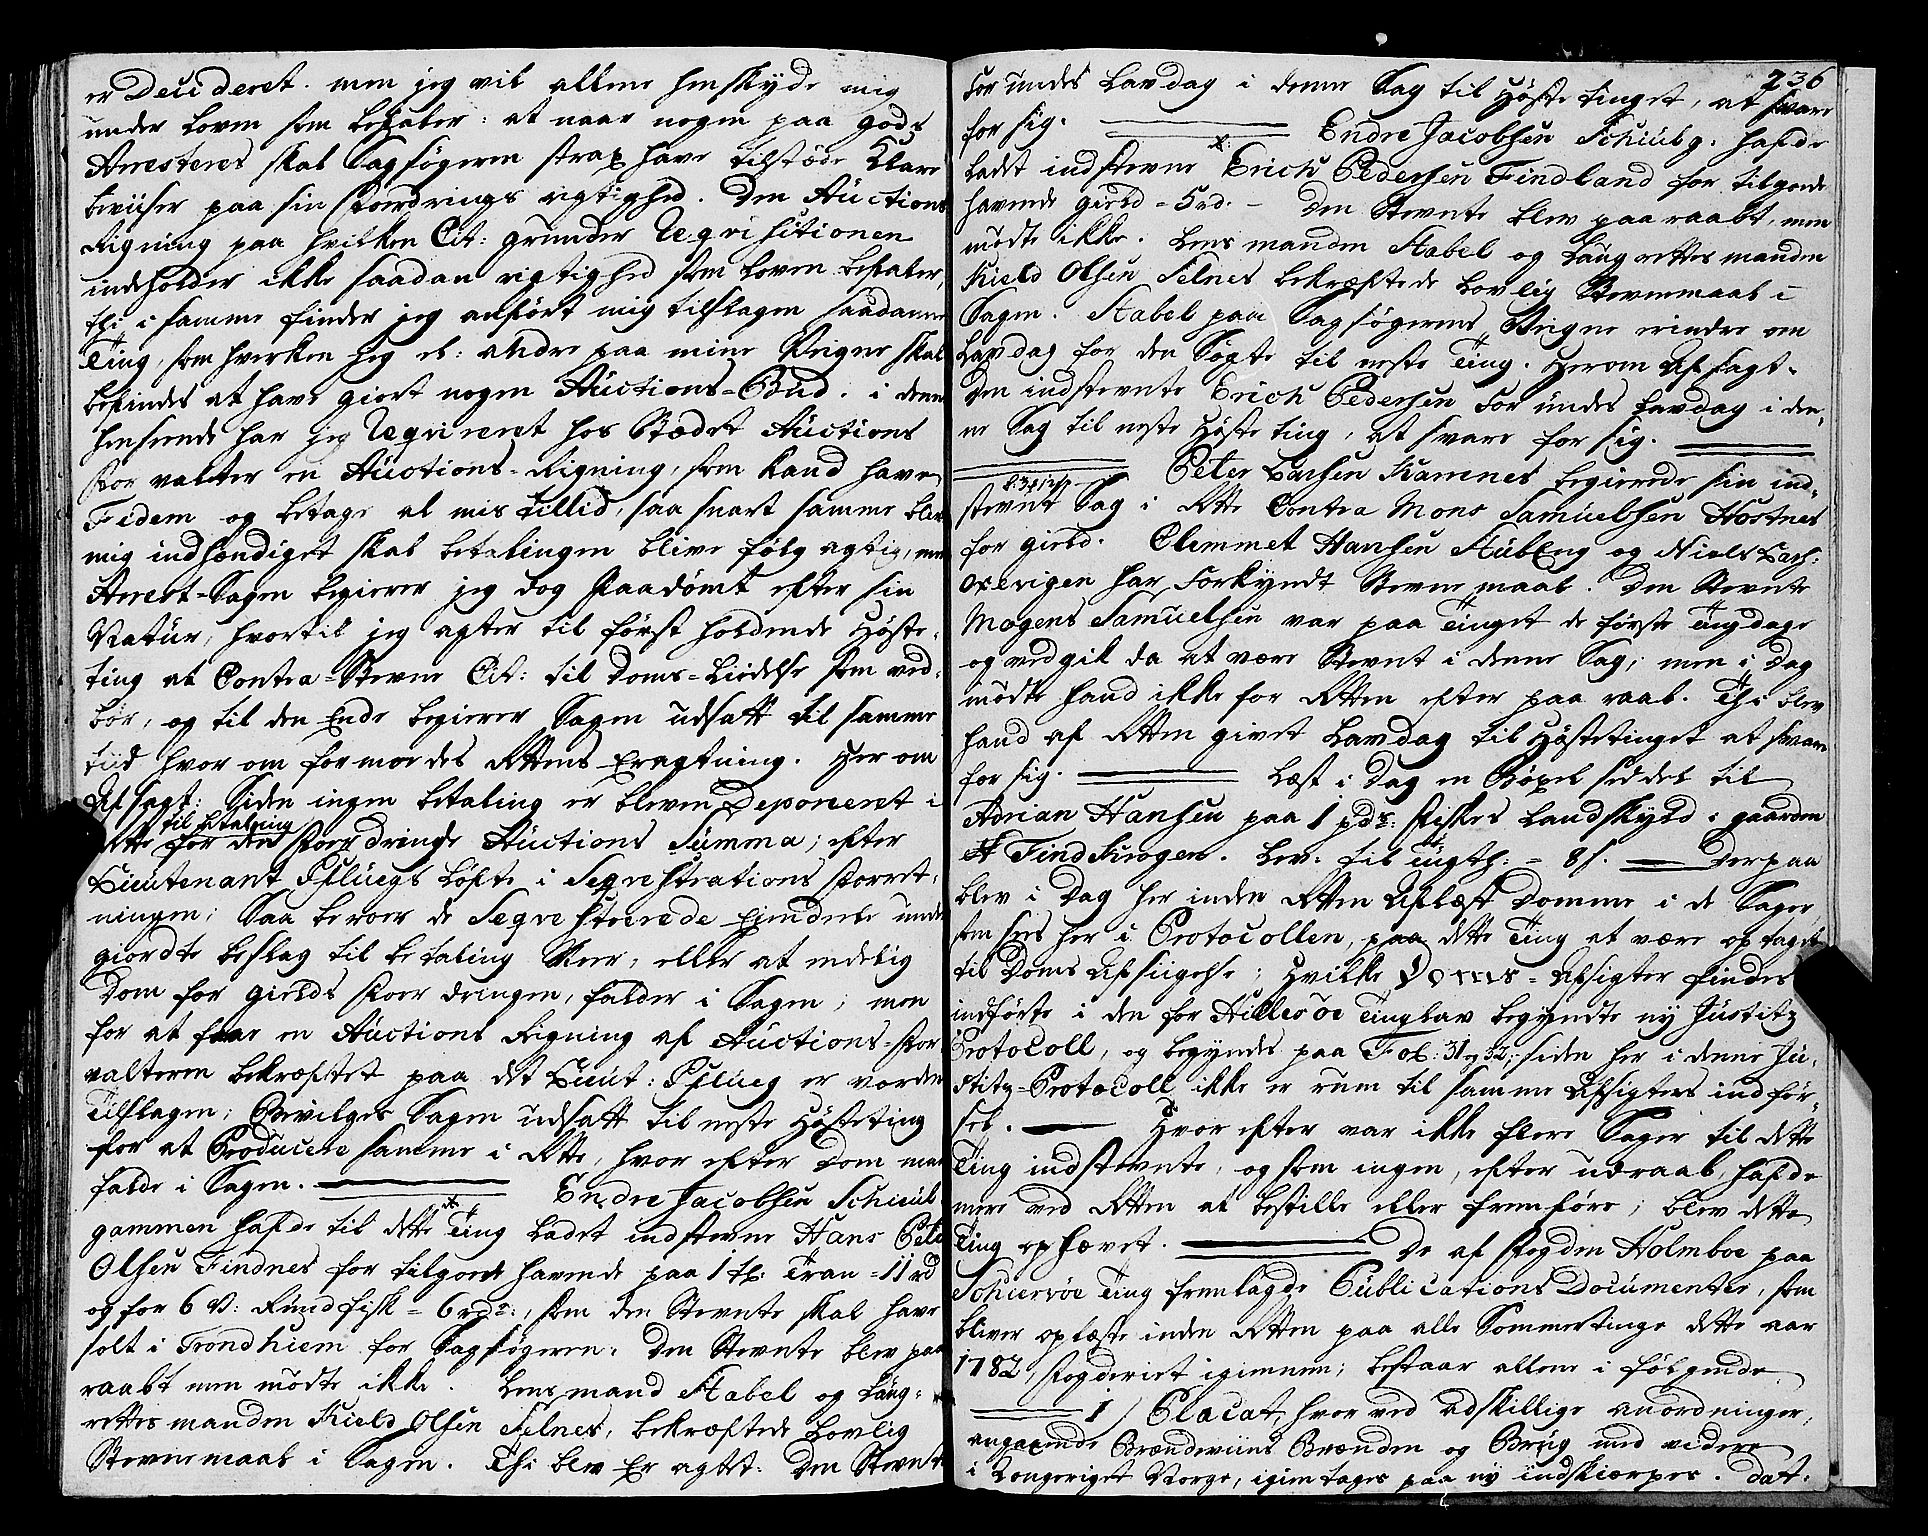 er Decideret. men jeg vil allene henskyde mig
under Loven som befaler: at naar nogen paa gods
Arresteret skal Sagsøgeren strax have tilstæde Klare
beviiser paa sin fordrings rigtighed. Den Auctions
Rigning paa hvilken Cit: grunder Reqvisitionen
indholder ikke saadan rigtighed som Loven befaler,
thi i samme finder jeg anført mig tilslagen saadanne
Ting, som hverken jeg el: andre paa mine Veigne skal
befindes at have giort nogen Auctions-Bud. i denne
henseende har jeg Reqvireret hos Stædet Auctions
forvalter en Auctions-Rigning, som kand have
Fidem og betage al mis tillid, saa snart samme blev
mig indhændiget skal betalingen blive følg agtig, men
Arrest-Sagen begierer jeg dog Paadømt efter sin
Natur, hvortil jeg agter til først holdende Høste-
ting at Contra-Stevne Cit: til Doms-Liidelse som ved-
bør, og til den Ende begierer Sagen udsatt til samme
tiid hvor om formodes Rettens Eragtning. Her om
Afsagt: Siden ingen betaling er bleven Deponeret i
til betaling
Rette for den fordrende Auctions Summa, efter
Lieutenant Pfluegs Løfte i Seqvestrations forret-
ningen; Saa beroer de Seqvestrerede Eiendeele under
giordte beslag til betaling skeer, eller at endelig
Dom for gields fordringen, falder i Sagen; men
for at faae en Auctions Rigning af Auctions-for
valteren bekræftet paa det Lieut: Pflueg er vorden
Tilslagen; Bevilges Sagen udsatt til neste Høsteting
for at Producere samme i Rette, hvor efter Dom maa
falde i Sagen. Endre Jacobsen Schiul
gammen hafde til dette Ting Ladet indstevne Hans Peder
Olsen Findnes for tilgode havende paa 1 td: Tran = 11 rd
og for 6 V: Rundfisk = 6 rdr:, som den Stevnte skal have
solt i Trondhiem for Sagsøgeren. Den Stevnte blev paa
raabt men mødte ikke. Lensmand Stabel og Laug-
rettes manden Kield Olsen Selnes, bekræftede Lovlig
Stevnemaal i Sagen. Thi blev Er agtet: Den Stevnte
236
for undes Lavdag i denne Sag til Høste tinget, at svare
for sig. Endre Jacobsen Schiulg: hafde
ladet indstevne Erich Pedersen Findland for tilgode
havende gield = 5 rd. - Den Stevnte blev paaraabt, men
mødte ikke. Lensmanden Stabel og Laugrettes manden
Kield Olsen Selnes bekræftede Lovlig Stevnemaal i
Sagen. Stabel paa Sagsøgerens Veigne erindre om
Lavdag for den Søgte til neste Ting. Herom Afsagt.
Den indstevnte Erich Pedersen for undes Lavdag i den-
ne Sag til neste Høste ting, at svare for sig.
Peter Larsen Kamnes begierede sin ind-
stevnt Sag i Rette Contra Mons Samuelsen Hostnes
for gield. Clemmet Hansen Stubeng og Niels Lars:
Oxevigen har forkyndt Stevne maal. Den Stevnte
Mogens Samuelsen var paa Tinget de første Tingdage
og vedgik da at være Stevnt i denne Sag, men i Dag
mødte hand ikke for Retten efter paa raab. Thi blev
hand af Retten givet Lavdag til Høstetinget at svare
for sig. Læst i Dag en Bøxel seddel til
Adrian Hansen paa 1 pdr: fiskes Landskyld i gaarden
Findkrogen. Lev: til Tugth: = 8 s. Derpaa
blev i Dag her inden Retten Aflæst Domme i de Sager
som sees her i Protocollen, paa dette Ting at være optaget
til Doms Afsiigelse; Hvilke Doms-Afsigter findes
indførte i den for Hillesøe Tinglav begyndte ny Justitz
Protocoll, og begyndes paa Fol: 31 og 32; siden her i denne Ju-
stitz-Protocoll ikke er rum til samme Afsigters indfør-
sel. Hvor efter var ikke flere Sager til dette
Ting indstevnte, og som ingen, efter udraab, hafde
mere ved Retten at bestille eller fremføre; blev dette
Ting ophævet. De af fogden Holmboe paa
Schiervøe Ting fremlagde Publications Documenter, som
bliver oplæste inden Retten paa alle Sommertinge dette aar
1782, fogderiet igiennem; bestaar allene i følgende
1/ Placat, hvor ved Adskillige anordninger,
angaaende Brændeviins Brænden og Brug med videre
i Kongeriget Norge, igientages paa ny indskiærpes. Dat: